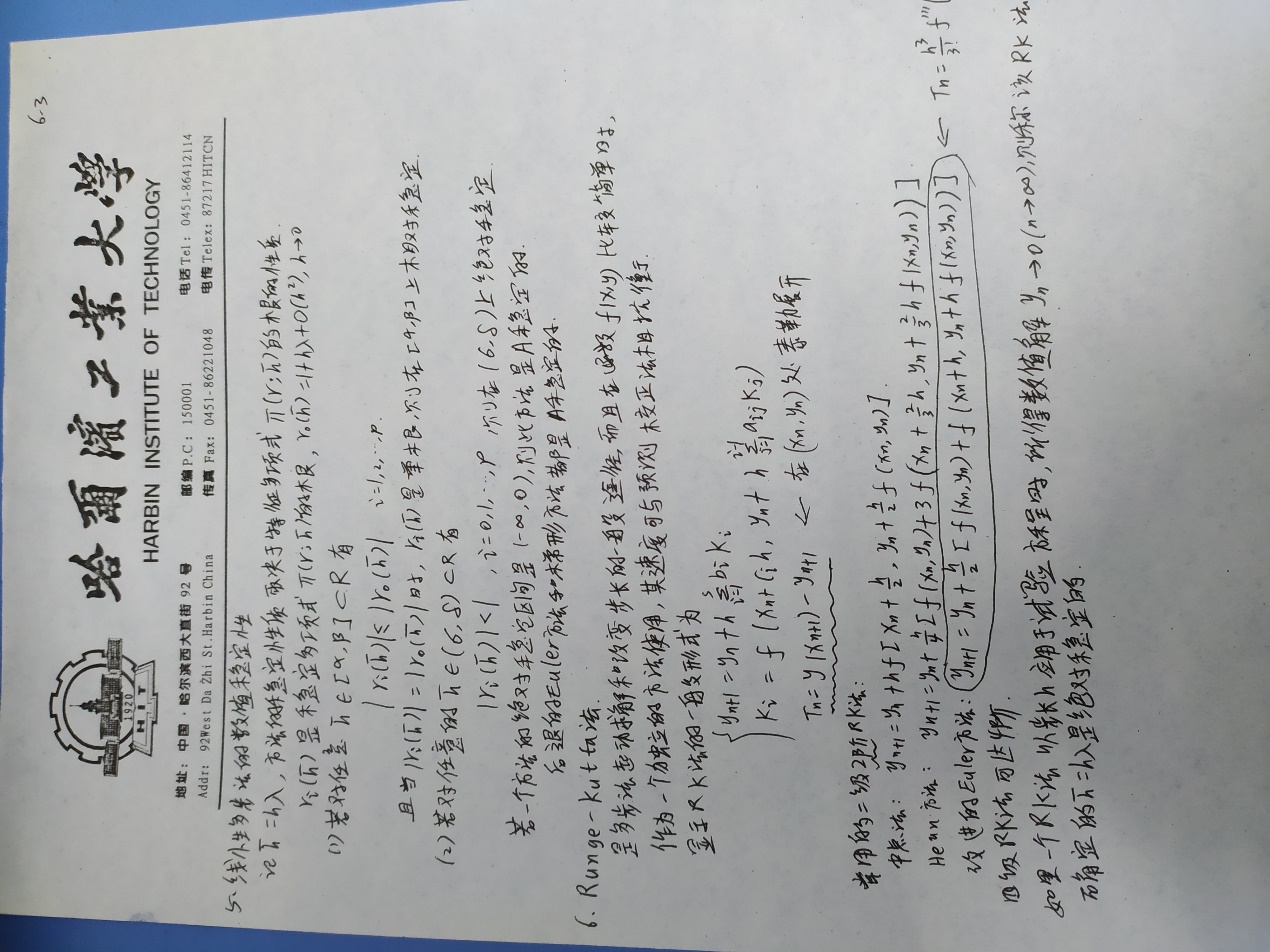 6.3
哈尔滨工业大学
HARBIN INSTITUTE OF TECHNOLOGY
1920
HIT
地址：中国·哈尔滨西大直街92号 邮编P.C：150001 电话Tel：0451-86412114
Addr：92West Da Zhi St.Harbin China 传真Fax：0451-86221048 电传Telex：87217HITCN
5. 线性多步法的数值稳定性
记 h̄=hλ，方法的稳定性质取决于特征多项式 π(r;h̄)的根的性质.
ri(h̄) 是稳定多项式 π(r;h̄)的根, r0(h̄)=1+hλ+O(h²), h→0
(1) 若对任意 h̄∈[α,β]⊂R 有
|ri(h̄)|≤|r0(h̄)| i=1,2,…,P.
且当|ri(h̄)|=|r0(h̄)|时, ri(h̄)是单根,则在[α,β]上相对稳定
(2) 若对任意的 h̄∈(6,δ)⊂R 有
|ri(h̄)|<1 , i=0,1,…,P 则在(6,δ)上绝对稳定
若一个方法的绝对稳定区间是(-∞,0),则此方法是A稳定的.
后退的Euler方法和梯形方法都是A稳定的.
6. Runge-Kutta法.
是多步法起动求解和改变步长的一般途径,而且在函数f(x,y)比较简单时,
作为一个独立的方法使用,其速度可与预测校正法相抗衡.
显式RK法的一般形式为
yn+1=yn+h∑_{i=1}^{s} biKi
Ki=f(xn+cih, yn+h∑_{j=1}^{i-1} aijKj)
Tn=y(xn+1)-yn+1 ← 在(xn,yn)处泰勒展开
常用的二级2阶RK法:
中点法: yn+1=yn+hf[xn+h/2, yn+h/2 f(xn,yn)]
Heun方法: yn+1=yn+h/4[f(xn,yn)+3f(xn+2/3h, yn+2/3hf(xn,yn))]
改进的Euler方法: yn+1=yn+h/2[f(xn,yn)+f(xn+h, yn+hf(xn,yn))] ← Tn=h³/3! f'''(
四级RK法可达4阶.
如果一个RK法以步长h应用于试验方程时,所得数值解yn→0(n→∞),则称该RK法
确定的h̄=hλ是绝对稳定的.